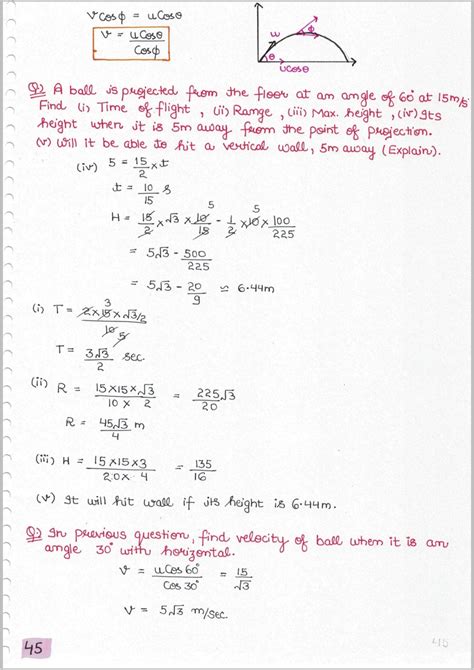 vcosϕ = ucosθ
v = ucosθ/cosϕ
u
ϕ
θ
ucosθ
Q) A ball is projected from the floor at an angle of 60° at 15m/s.
Find (i) Time of flight, (ii) Range, (iii) Max. height, (iv) Its
height when it is 5m away from the point of projection.
(v) Will it be able to hit a vertical wall, 5m away (Explain).
(iv) 5 = 15/2 × t
t = 10/15 s
H = 15/2 × √3 × 10/15 - 1/2 × 10 × 100/225
5 5
= 5√3 - 500/225
= 5√3 - 20/9 ≃ 6.44m
(i) T = 2×15×√3/2 / 10
3
5
T = 3√3/2 sec.
(ii) R = 15×15×√3 / 10 × 2 = 225√3/20
R = 45√3/4 m
(iii) H = 15×15×3 / 20×4 = 135/16
(v) It will hit wall if its height is 6.44m.
Q) In previous question, find velocity of ball when it is an
angle 30° with horizontal.
v = ucos60°/cos30° = 15/√3
v = 5√3 m/sec.
45